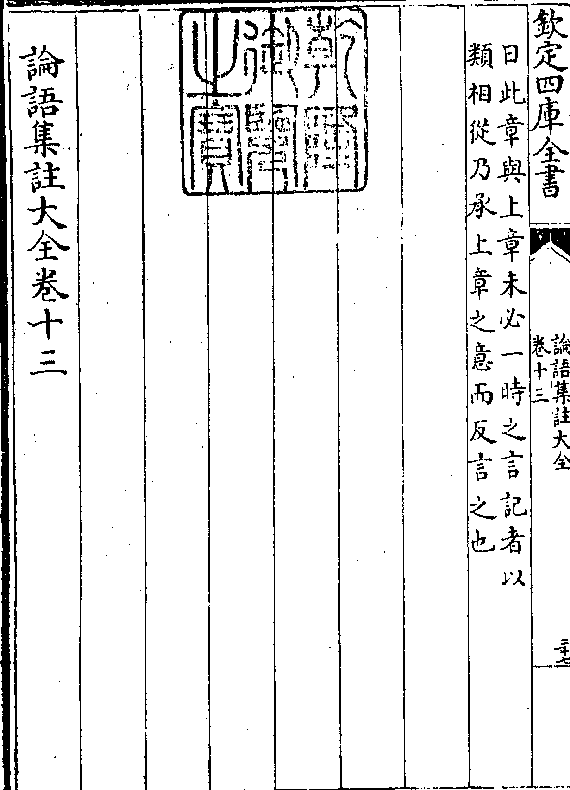 欽定四庫全書
論語集註大全
卷十三
曰此章與上章未必一時之言記者以
類相從乃承上章之意而反言之也
乾隆
御覽
之寶
論語集註大全卷十三